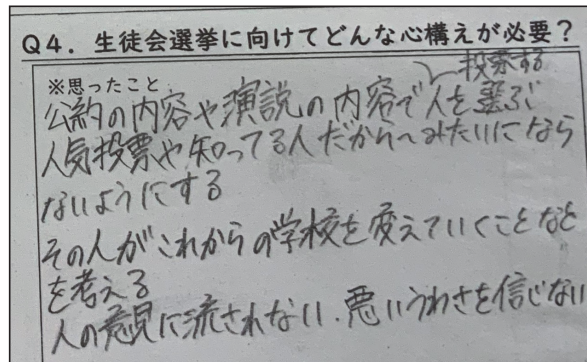 Q4. 生徒会選挙に向けてどんな心構えが必要？
※思ったこと
投票する
公約の内容や演説の内容で人を選ぶ
人気投票や知ってる人だから〜みたいになら
ないようにする
その人がこれからの学校を変えていくことなど
を考える
人の意見に流されない.悪いうわさを信じない